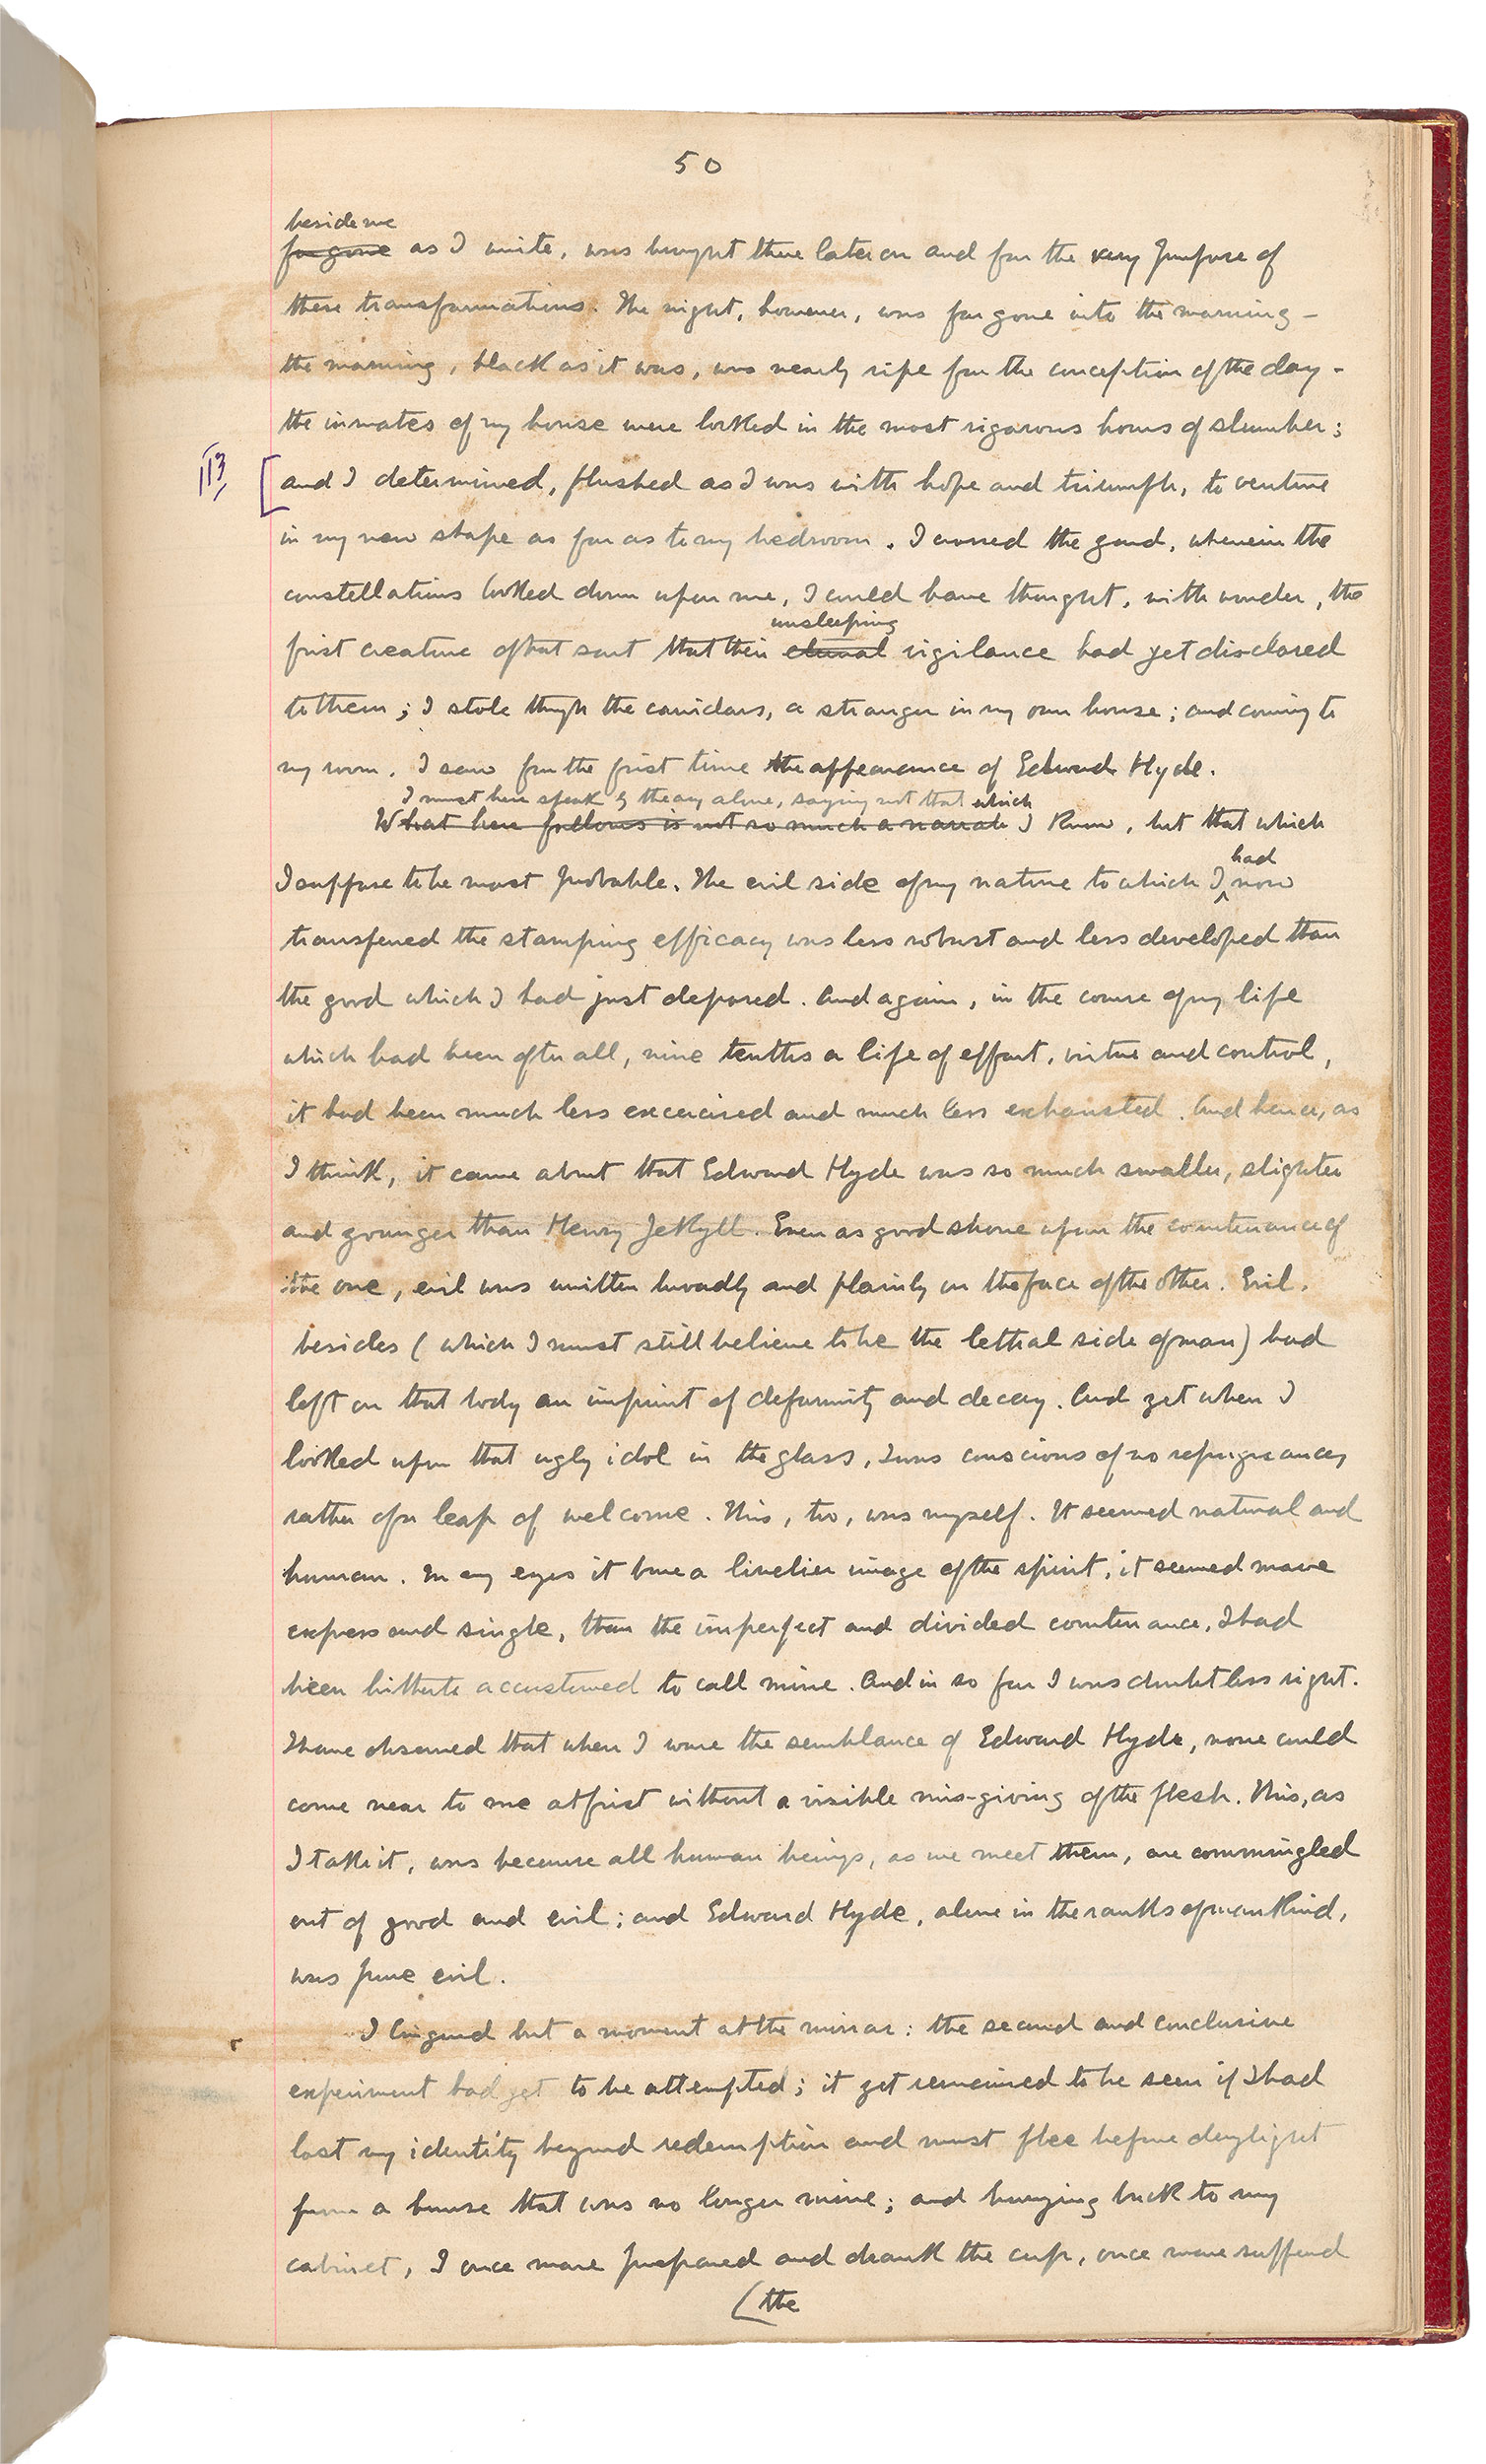 50
beside me
far gone as I write, was brought there later on and for the very purpose of
these transformations. The night, however, was far gone into the morning -
the morning, black as it was, was nearly ripe for the conception of the day -
the inmates of my house were locked in the most rigorous hours of slumber;
113
[and I determined, flushed as I was with hope and triumph, to venture
in my new shape as far as to my bedroom. I crossed the yard, wherein the
constellations looked down upon me, I could have thought, with wonder, the
unsleeping
first creature of that sort that their eternal vigilance had yet disclosed
to them; I stole through the corridors, a stranger in my own house; and coming to
my room, I saw for the first time the appearance of Edward Hyde.
I must here speak by theory alone, saying not that which
What here follows is not so much a narrate I know, but that which
had
I suppose to be most probable. The evil side of my nature to which I ‸ now
transferred the stamping efficacy was less robust and less developed than
the good which I had just deposed. And again, in the course of my life
which had been after all, nine tenths a life of effort, virtue and control,
it had been much less excercised and much less exhausted. And hence, as
I think, it came about that Edward Hyde was so much smaller, slighter
and younger than Henry Jekyll. Even as good shone upon the countenance of
the one, evil was written broadly and plainly on the face of the other. Evil,
besides (which I must still believe to be the lethal side of man) had
left on that body an imprint of deformity and decay. And yet when I
looked upon that ugly idol in the glass, I was conscious of no repugnancy
rather of a leap of welcome. This, too, was myself. It seemed natural and
human. In my eyes it bore a livelier image of the spirit, it seemed more
express and single, than the imperfect and divided countenance, I had
been hitherto accustomed to call mine. And in so far I was doubtless right.
I have observed that when I wore the semblance of Edward Hyde, none could
come near to me at first without a visible mis-giving of the flesh. This, as
I take it, was because all human beings, as we meet them, are commingled
out of good and evil; and Edward Hyde, alone in the ranks of mankind,
was pure evil.
I lingered but a moment at the mirror: the second and conclusive
experiment had yet to be attempted; it yet remained to be seen if I had
lost my identity beyond redemption and must flee before daylight
from a house that was no longer mine; and hurrying back to my
cabinet, I once more prepared and drank the cup, once more suffered
(the